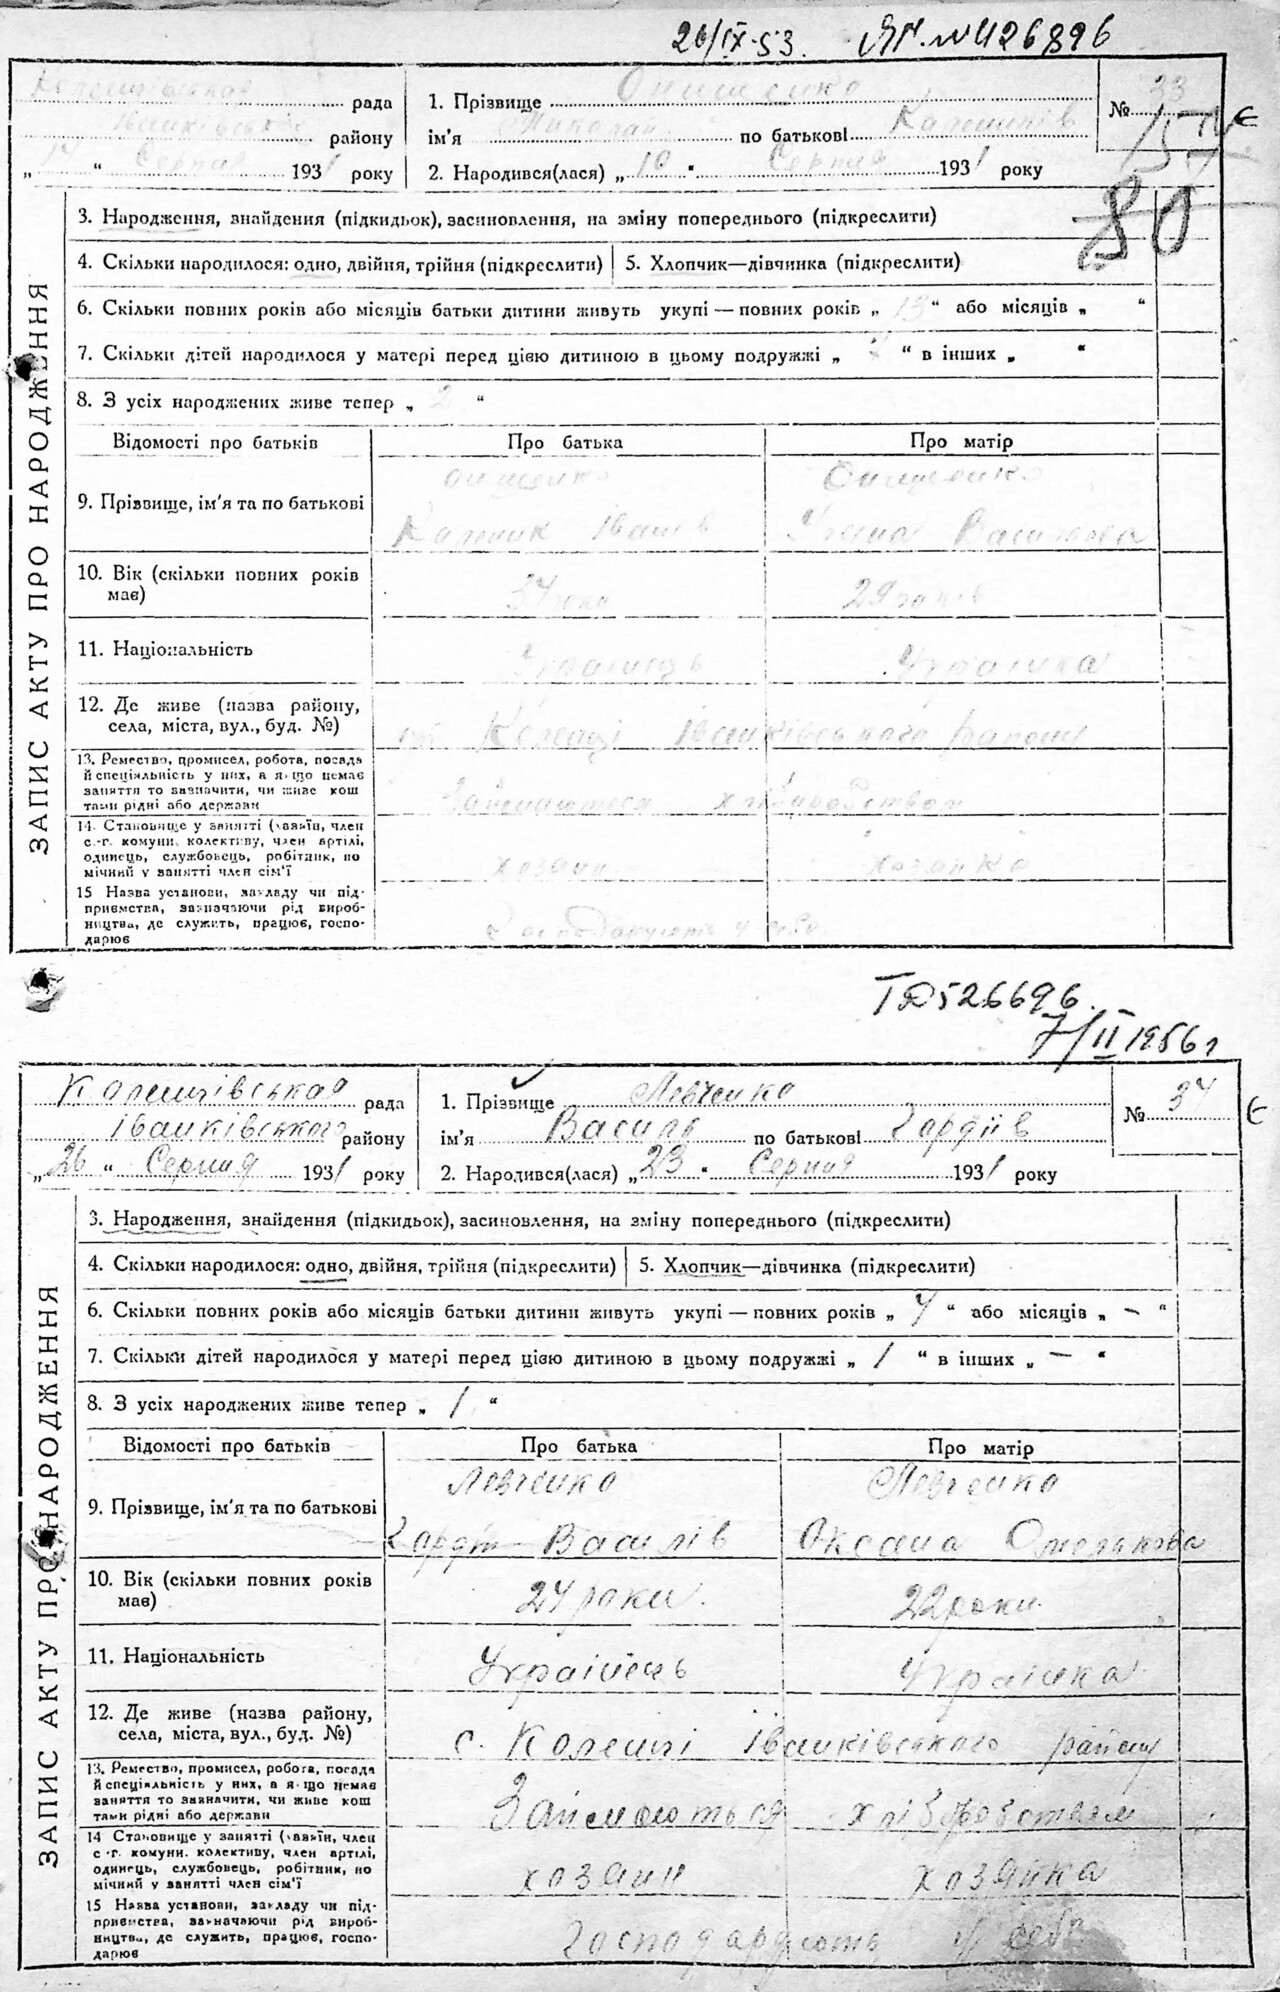 26/IX-53. ЯГ. № 426896
Колентівська рада
Іванківськ району
„14“ Серпня 1931 року
1. Прізвище Онищенко
ім'я Миколай по батькові Калеників
2. Народився(лася) „10“ Серпня 1931 року
№ 33
80
ЗАПИС АКТУ ПРО НАРОДЖЕННЯ
3. Народження, знайдення (підкидьок), засиновлення, на зміну попереднього (підкреслити)
4. Скільки народилося: одно, двійня, трійня (підкреслити) 5. Хлопчик—дівчинка (підкреслити)
6. Скільки повних років або місяців батьки дитини живуть укупі — повних років „13“ або місяців „ “
7. Скільки дітей народилося у матері перед цією дитиною в цьому подружжі „ “ в інших „ “
8. З усіх народжених живе тепер „2“
Відомості про батьків Про батька Про матір
9. Прізвище, ім'я та по батькові
Онищенко Онищенко
Каленик Іванів Уляна Василова
10. Вік (скільки повних років має)
34 роки 29 років
11. Національність
Українець Українка
12. Де живе (назва району, села, міста, вул., буд. №)
Коленці Іванківського району
13. Ремество, промисел, робота, посада
й спеціяльність у них, а якщо немає
заняття то зазначити, чи живе кош
тами рідні або держави
Займаються хліборобством
14. Становище у занятті (хазяїн, член
с.-г. комуни, колективу, член артілі,
одинець, службовець, робітник, по
мічний у занятті член сім'ї
хозяин хозяйка
15 Назва установи, закладу чи під-
приємства, зазначаючи рід вироб-
ництва, де служить, працює, госпо-
дарює
Господарують у себе
ТД 526696.
7/II 1956 г
Коленцівськая рада
Іванківського району
„26“ Серпня 1931 року
1. Прізвище Левченко
ім'я Василь по батькові Гордіїв
2. Народився(лася) „23“ Серпня 1931 року
№ 34
ЗАПИС АКТУ ПРО НАРОДЖЕННЯ
3. Народження, знайдення (підкидьок), засиновлення, на зміну попереднього (підкреслити)
4. Скільки народилося: одно, двійня, трійня (підкреслити) 5. Хлопчик—дівчинка (підкреслити)
6. Скільки повних років або місяців батьки дитини живуть укупі — повних років „4“ або місяців „—“
7. Скільки дітей народилося у матері перед цією дитиною в цьому подружжі „1“ в інших „—“
8. З усіх народжених живе тепер „1“
Відомості про батьків Про батька Про матір
9. Прізвище, ім'я та по батькові
Левченко Левченко
Гордій Василів Оксана Омелькова
10. Вік (скільки повних років має)
24 роки. 22 роки.
11. Національність
Українець Українка
12. Де живе (назва району, села, міста, вул., буд. №)
с. Коленці Іванківського району
13. Ремество, промисел, робота, посада
й спеціяльність у них, а якщо немає
заняття то зазначити, чи живе кош
тами рідні або держави
Займаються хліборобством
14 Становище у занятті (хазяїн, член
с-г. комуни. колективу, член артілі,
одинець, службовець, робітник, по
мічний у занятті член сім'ї
хозяин хозяйка
15 Назва установи, закладу чи під-
приємства, зазначаючи рід вироб-
ництва, де служить, працює, госпо-
дарює
Господарюють у себе